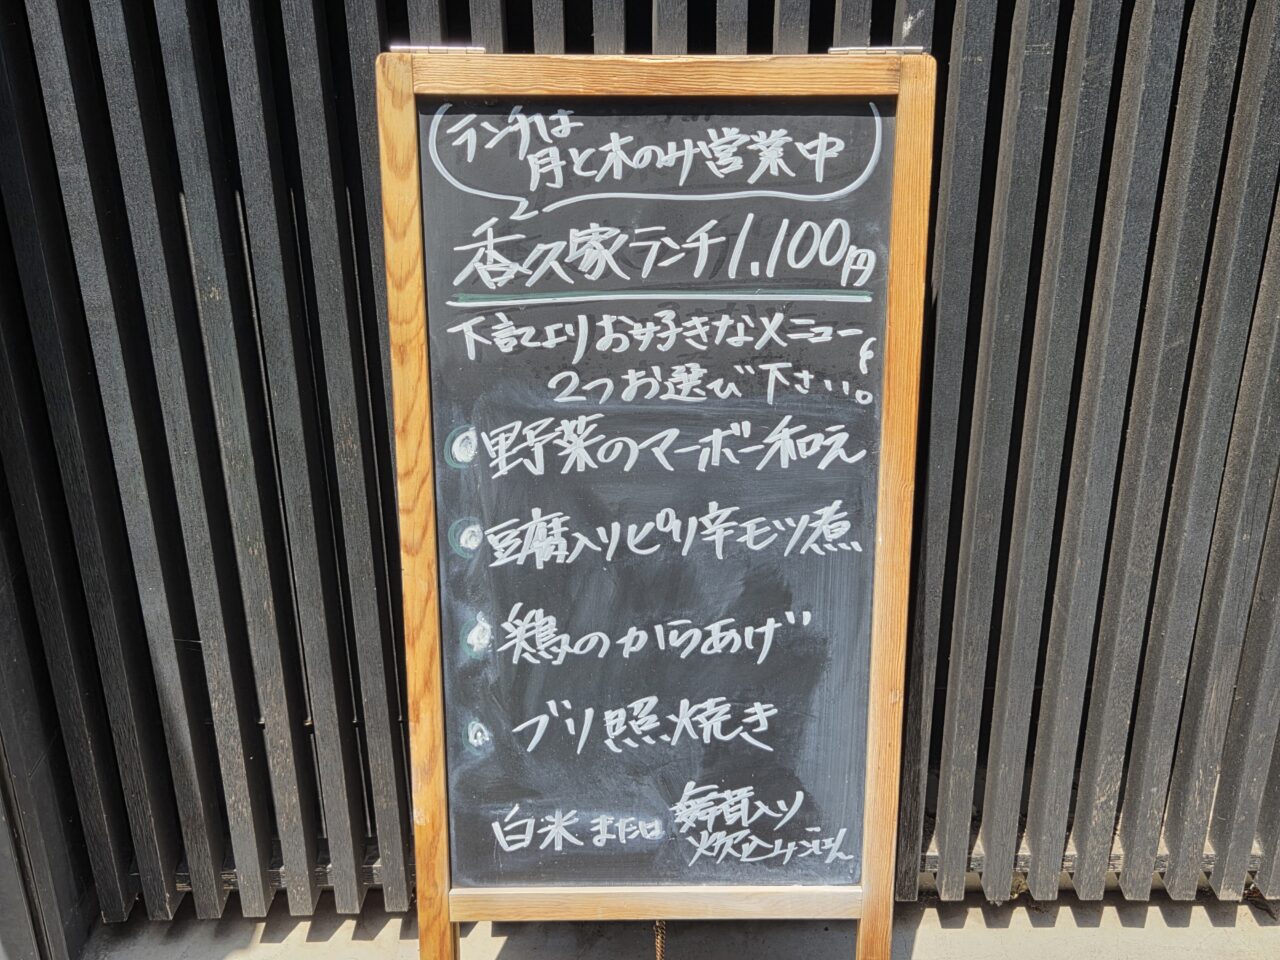 ランチは
月と木のみ営業中
香久家ランチ1.100円
下記よりお好きなメニューを
2つお選び下さい。
野菜のマーボー和え
豆腐入りピリ辛モツ煮
鶏のからあげ
ブリ照焼き
白米または 舞茸入り
炊込みごはん